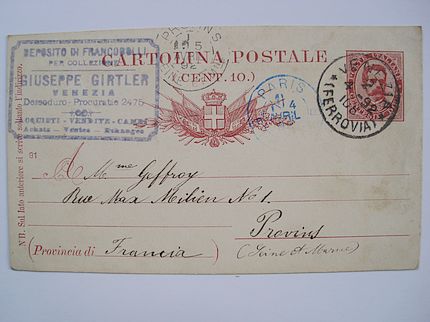 DEPOSITO DI FRANCOBOLLI
PER COLLEZIONI
GIUSEPPE GIRTLER
VENEZIA
Dorsoduro-Procuratie 2475
ACQUISTI - VENDITE - CAMBI
Achats - Ventes - Echanges
PROVINS
CARTOLINA POSTALE
(CENT. 10.)
PARIS
4
AVRIL
92
(FERROVIA)
NB. Sul lato anteriore si scrive soltanto l'indirizzo.
91
A Mme Geffroy
Rue Max Milien No 1.
Provins
(Provincia di Francia) (Seine et Marne)